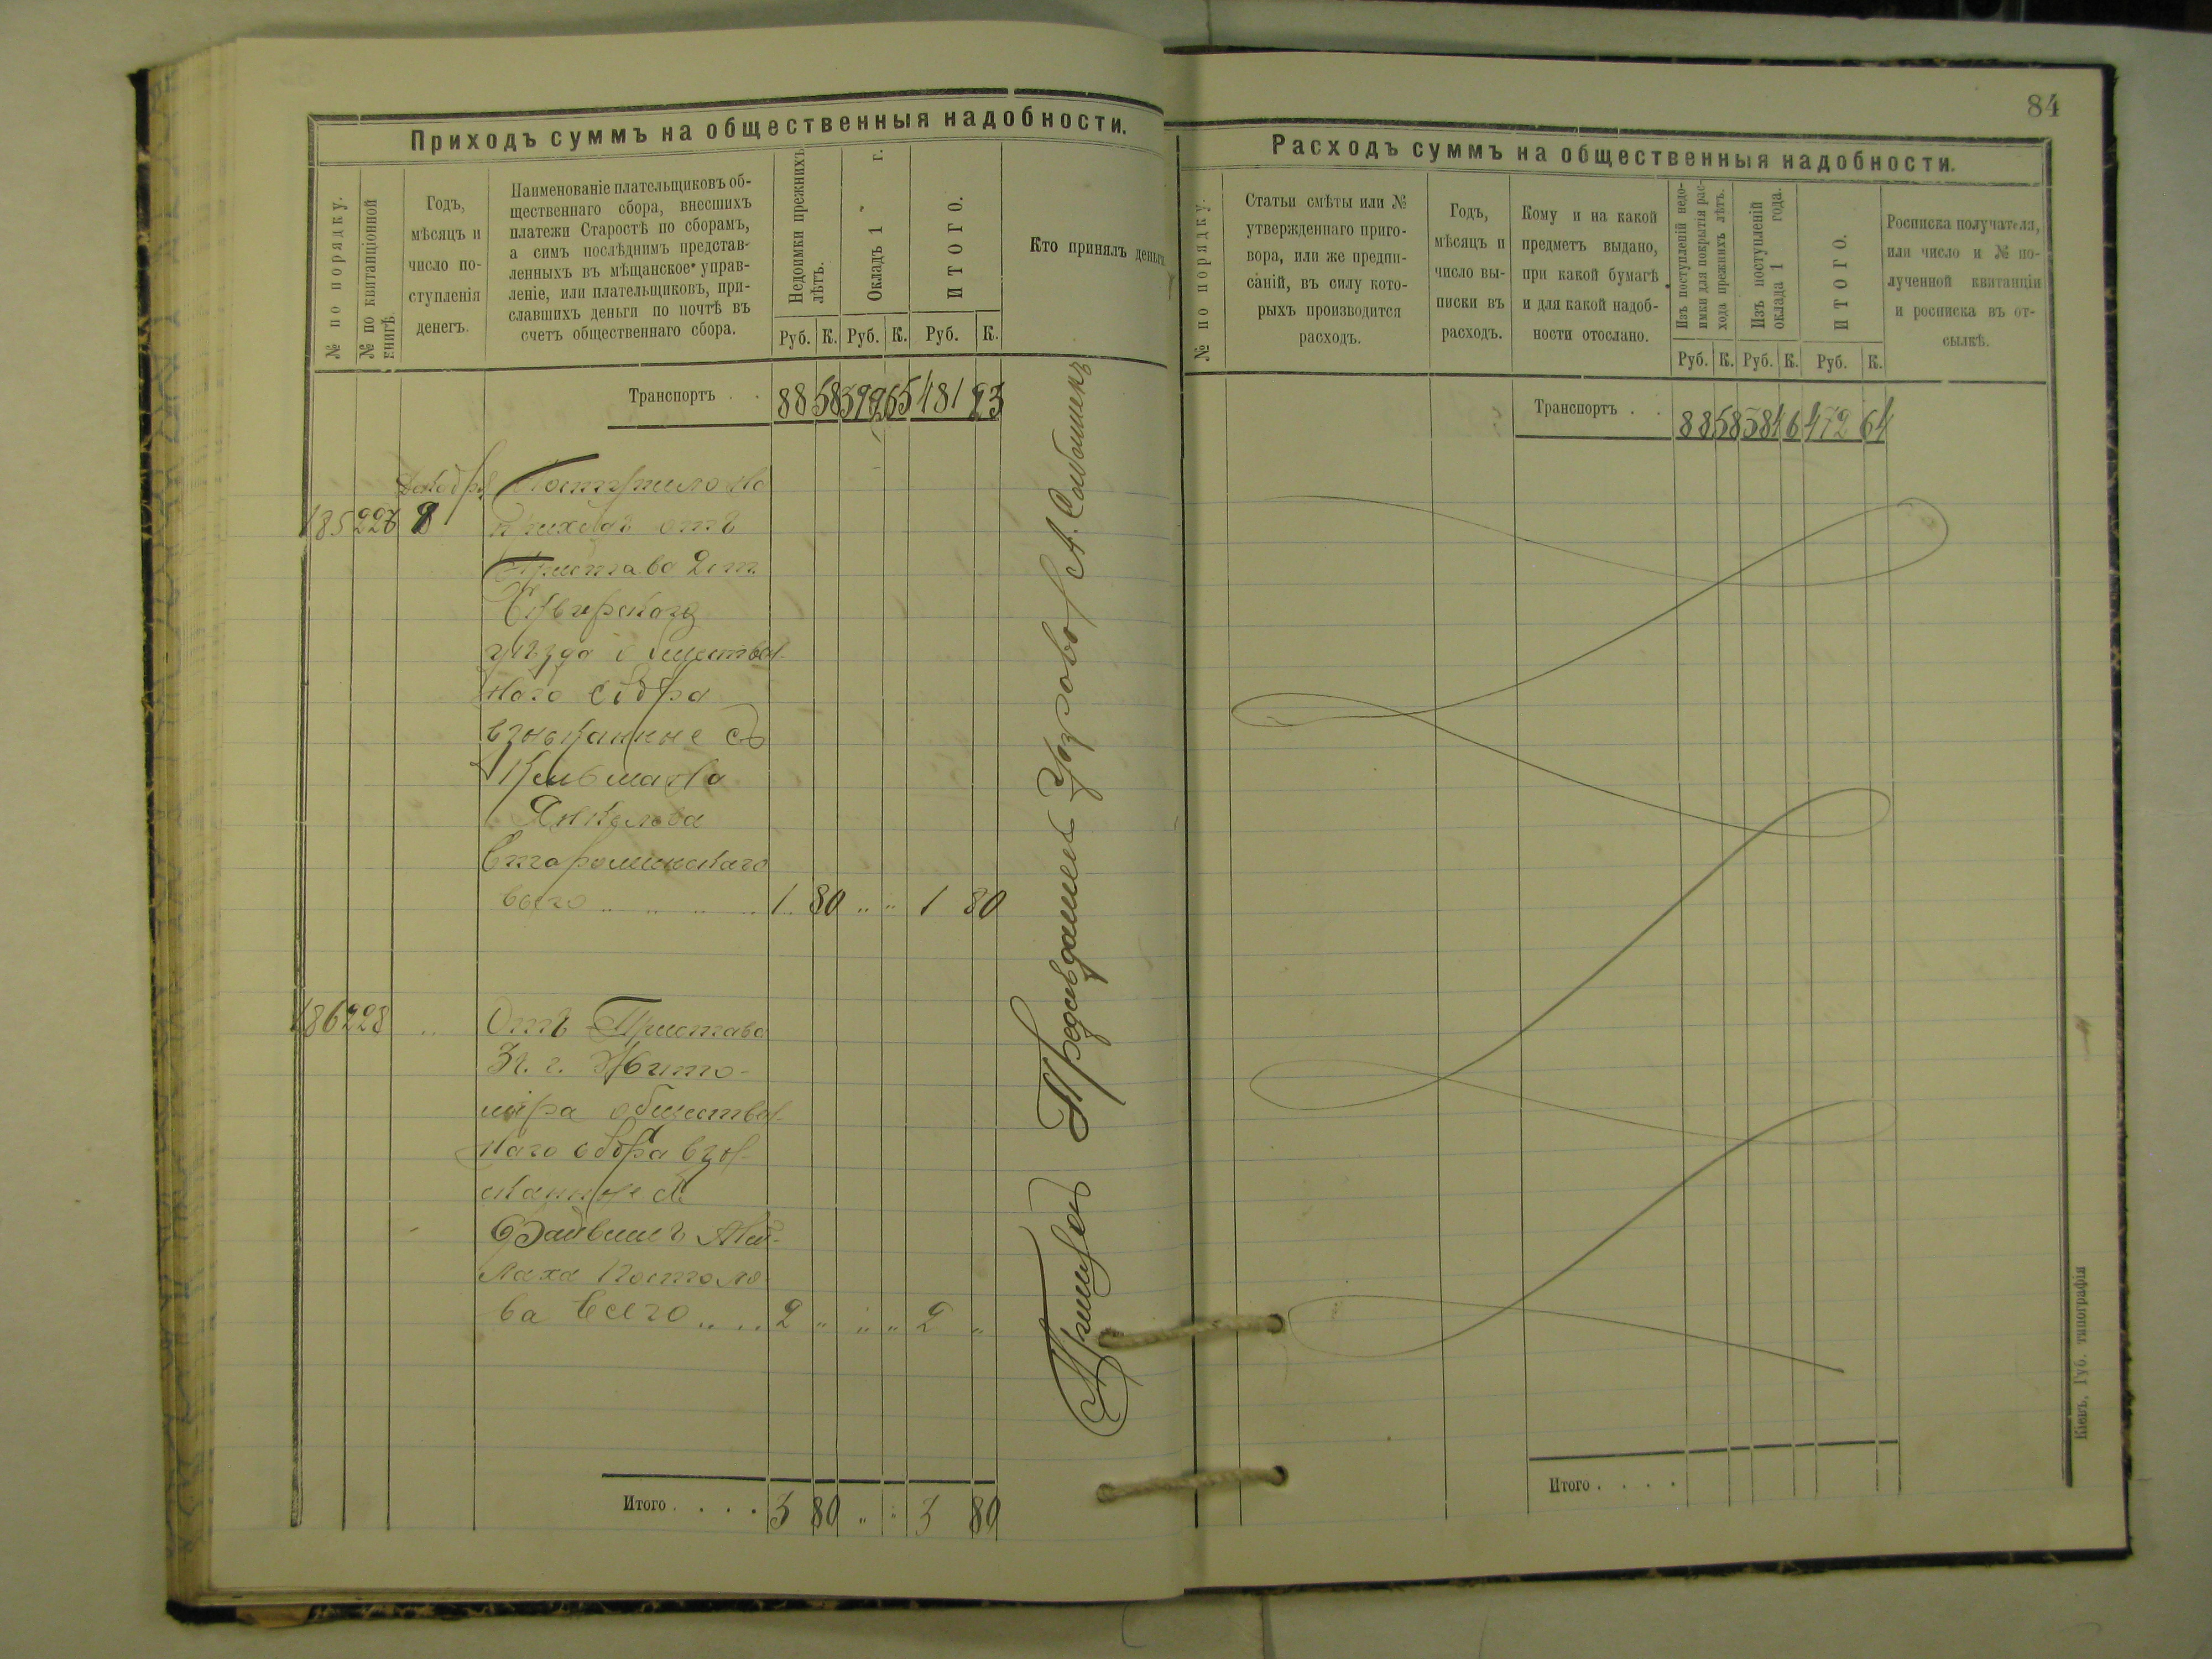 Приходъ суммъ на общественныя надобности.
№ по порядку.
№ по квитанціонной
книгѣ.
Годъ,
мѣсяцъ и
число по-
ступленія
денегъ.
Наименованіе плательщиковъ об-
щественнаго сбора, внесшихъ
платежи Старостѣ по сборамъ,
а симъ послѣднимъ представ-
ленныхъ въ мѣщанское управ-
леніе, или плательщиковъ, при-
славшихъ деньги по почтѣ въ
счетъ общественнаго сбора.
Недоимки прежнихъ
лѣтъ.
Окладъ 1 г.
ИТОГО.
Кто принялъ деньги
Руб. К. Руб. К. Руб. К.
Транспортъ . . 88 58 392 65 481 23
Декабря Поступило на
185 227 8 приходъ отъ
Пристава 2 ст.
Сквирскаго
уѣзда обществен-
наго сбора
взысканные съ
Кельмана
Янкелева
Староминскаго
всего 1 80 „ „ 1 80
186 228 „ Отъ Пристава
3 ч. г. Жито-
міра обществен-
наго сбора взы-
сканные съ
Файвеля
Постоло-
ва всего 2 „ „ „ 2 „
Итого . . . . 3 80 „ „ 3 80
84
Расходъ суммъ на общественныя надобности.
№ по порядку.
Статьи смѣты или №
утвержденнаго приго-
вора, или же предпи-
саній, въ силу кото-
рыхъ производится
расходъ.
Годъ,
мѣсяцъ и
число вы-
писки въ
расходъ.
Кому и на какой
предметъ выдано,
при какой бумагѣ
и для какой надоб-
ности отослано.
Изъ поступленій недо-
имки для покрытія рас-
хода прежнихъ лѣтъ.
Изъ поступленій
оклада 1 года.
ИТОГО.
Росписка получателя,
или число и № по-
лученной квитанціи
и росписка въ от-
сылкѣ.
Руб. К. Руб. К. Руб. К.
Транспортъ . . 88 58 384 6 472 64
Итого . . . .
Кіевъ, Губ. типографія